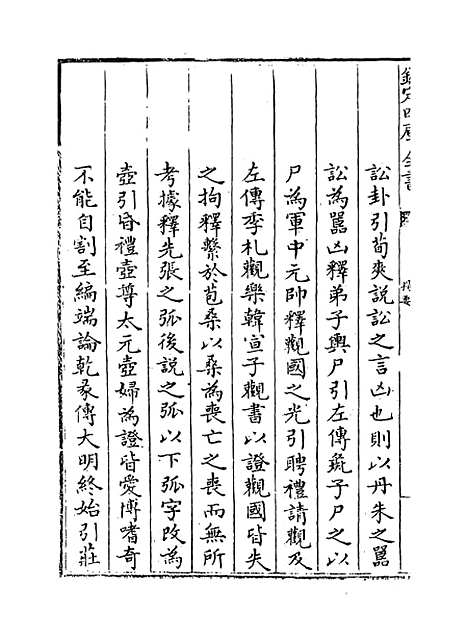 欽定四庫全書
提要
訟卦引荀爽説訟之言凶也則以丹朱之嚚
訟為嚚凶釋弟子輿尸引左傳彘子尸之以
尸為軍中元帥釋觀國之光引聘禮請觀及
左傳季札觀樂韓宣子觀書以證觀國皆失
之拘釋繫於苞桑以桑為喪亡之喪而無所
考據釋先張之弧後説之弧以下弧字改為
壺引昏禮壺尊太元壺婦為證皆愛博嗜奇
不能自割至編端論乾彖傳大明終始引莊